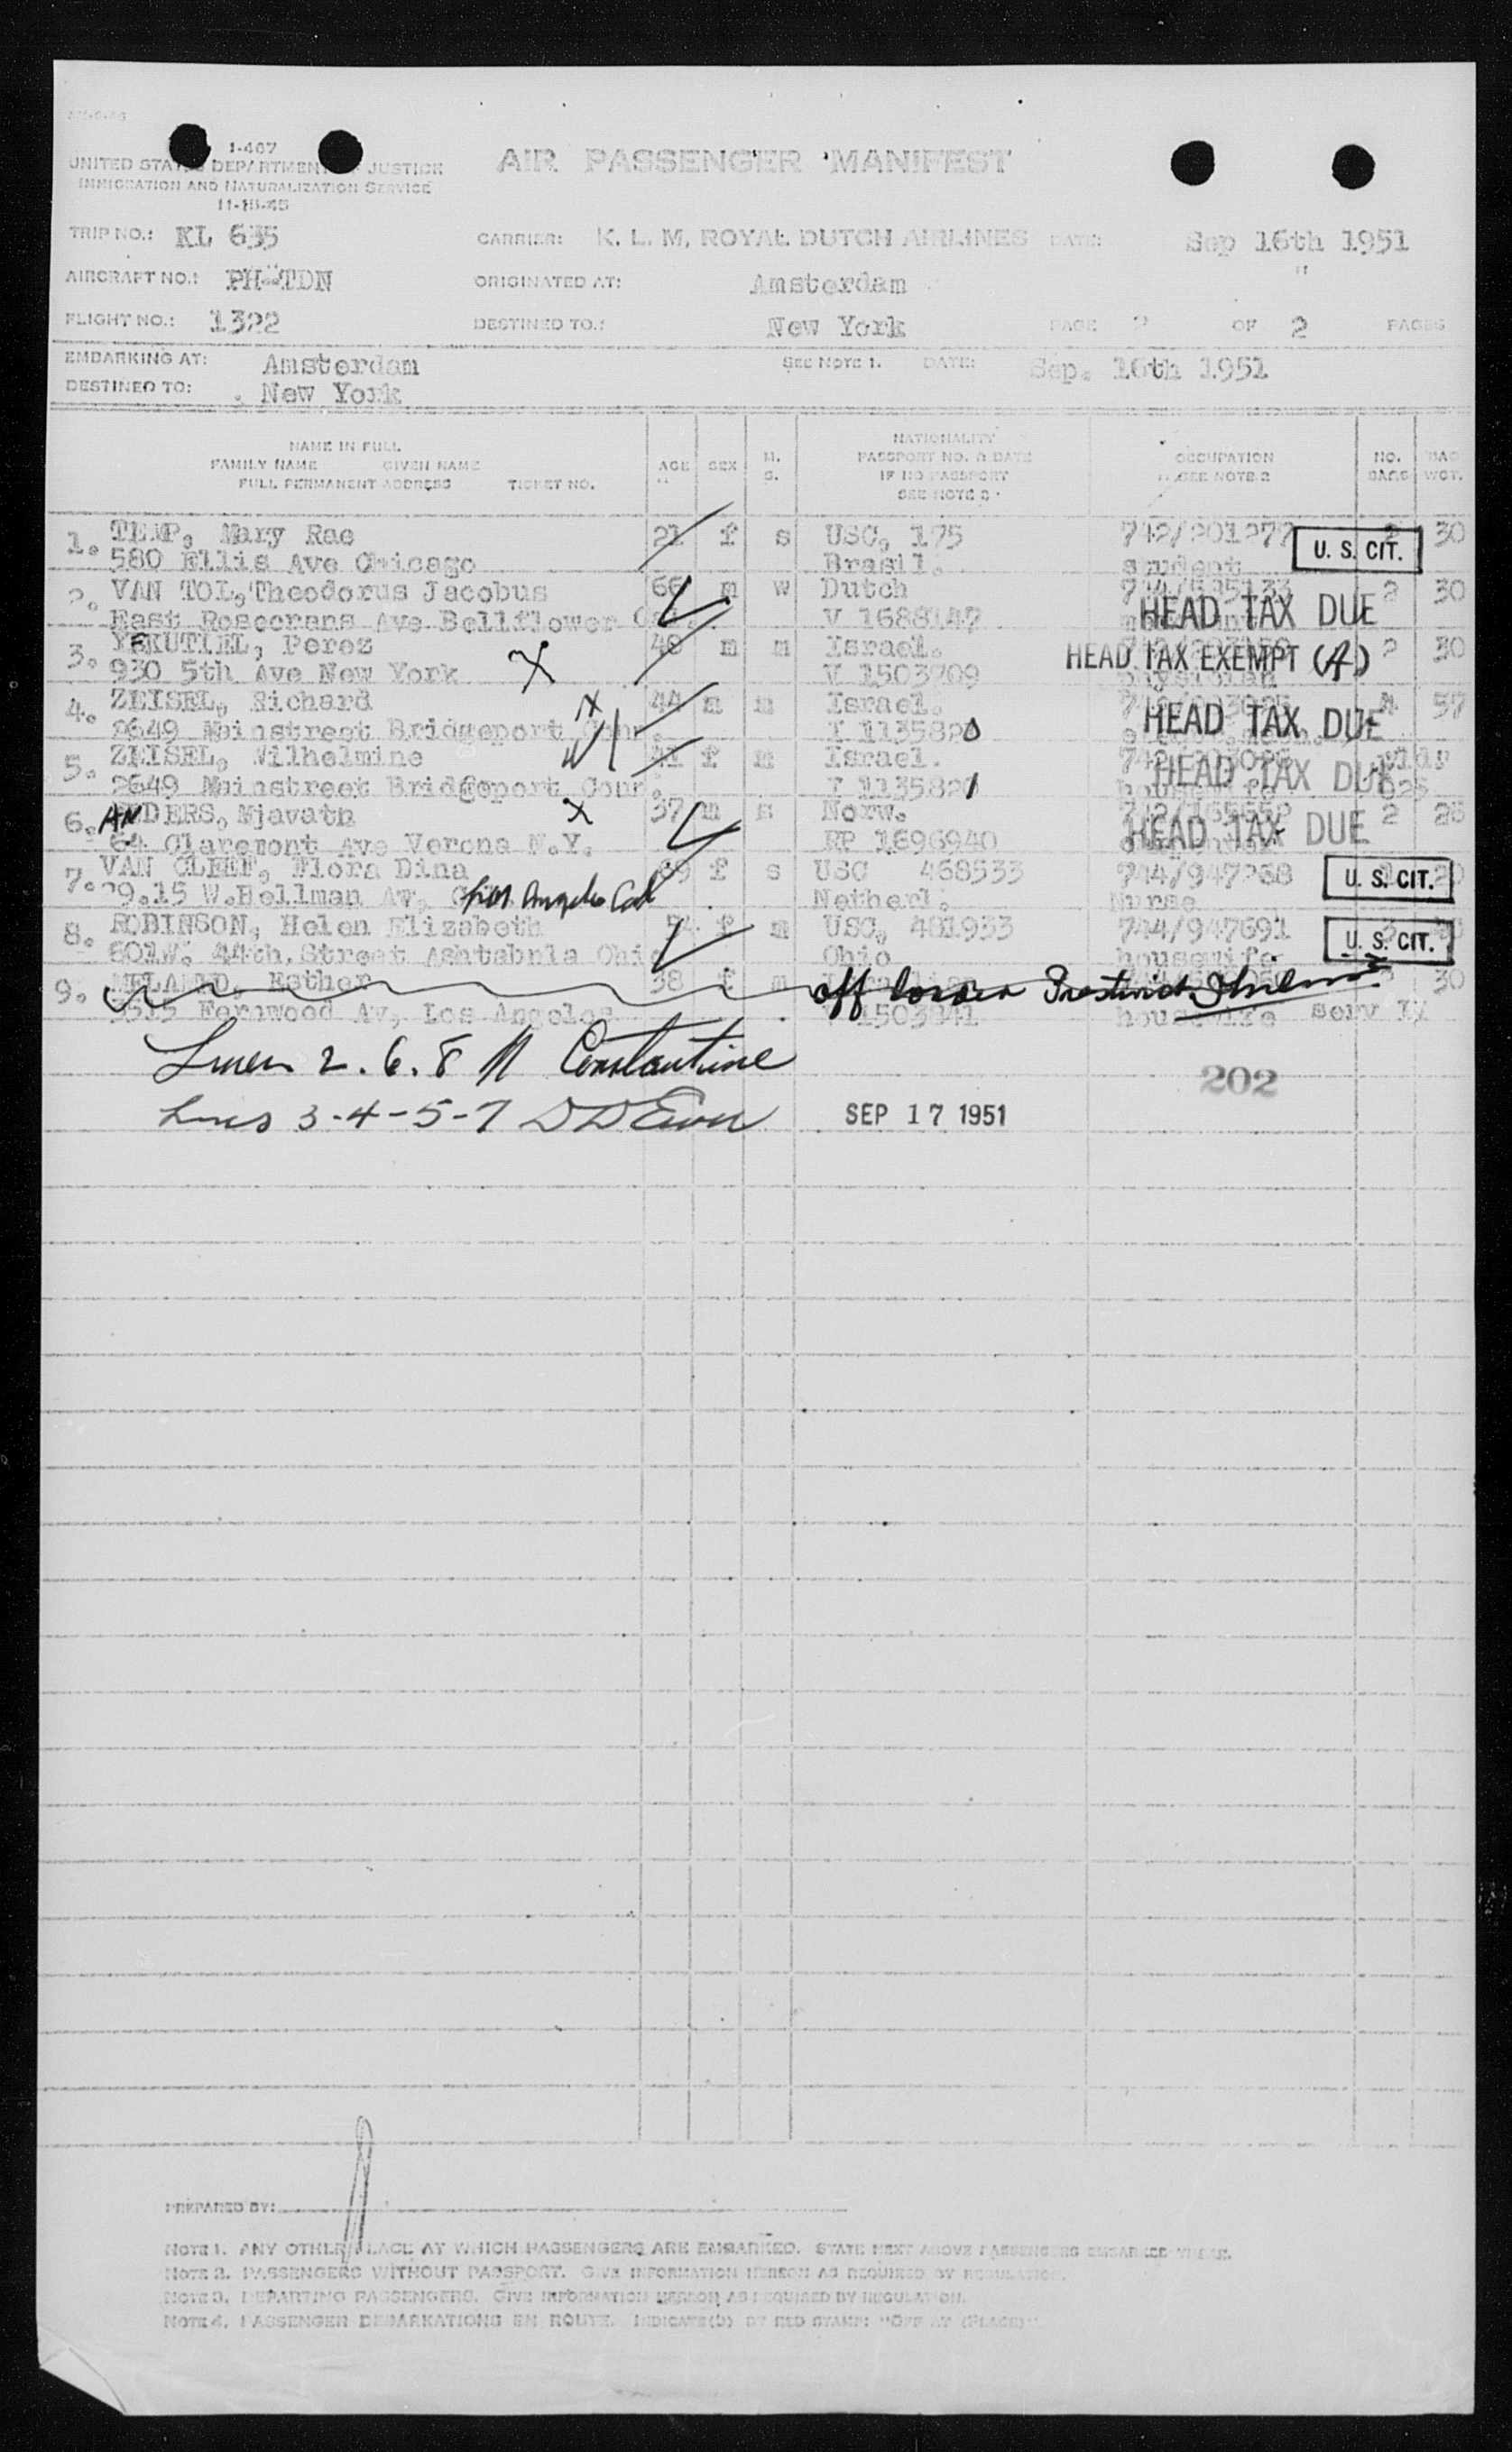 1-467
UNITED STATES DEPARTMENT OF JUSTICE
IMMIGRATION AND NATURALIZATION SERVICE
11-18-45
AIR PASSENGER MANIFEST
TRIP NO.: KL 635 CARRIER: K. L. M. ROYAL DUTCH AIRLINES DATE: Sep 16th 1951
AIRCRAFT NO.: PH-TDN ORIGINATED AT: Amsterdam "
FLIGHT NO.: 1322 DESTINED TO.: New York PAGE 2 OF 2 PAGES
EMBARKING AT: Amsterdam SEE NOTE 1. DATE: Sep. 16th 1951
DESTINED TO: New York
NAME IN FULL
FAMILY NAME GIVEN NAME
FULL PERMANENT ADDRESS TICKET NO.
AGE SEX M. S.
NATIONALITY
PASSPORT NO. & DATE
IF NO PASSPORT
SEE NOTE 2
OCCUPATION
SEE NOTE 2
NO. BAGS BAG WGT.
1. Mary Rae 21 f s USC, 175 742/201277 2 30
580 Ellis Ave Chicago Brasil. student U. S. CIT.
2. VAN TOL, Theodorus Jacobus 66 m w Dutch 2 30
East Rosecrans Ave Bellflower V 1688147 HEAD TAX DUE
3. YEKUTIEL, Perez 40 m m Israel. 2 30
930 5th Ave New York X V 1503709 physician HEAD TAX EXEMPT (A)
4. ZEISEL, Richard X 44 m m Israel. 4 57
2649 Mainstreet Bridgeport Conn. T 1135820 HEAD TAX DUE
5. ZEISEL, Wilhelmine 41 f m Israel.
2649 Mainstreet Bridgeport Conn. T 1135821 housewife HEAD TAX DUE
6. ANDERS, Mjavatn X 37 m s Norw. 2 25
64 Claremont Ave Verona N.Y. RP 1696940 HEAD TAX DUE
7. VAN CLEEF, Flora Dina 69 f s USC 468533 744/947268 20
29.15 W.Bellman Av, Los Angeles Cal Netherl. Nurse U. S. CIT.
8. ROBINSON, Helen Elizabeth 54 f m USC, 481933 744/947691 3
601W. 44th, Street Ashtabula Ohio Ohio housewife U. S. CIT.
9. Esther 38 f m off 30
5515 Fernwood Av, Los Angeles 1503941 housewife Serv
Lines 2. 6. 8 Constantine 202
Lines 3-4-5-7 SEP 17 1951
PREPARED BY:
NOTE 1. ANY OTHER PLACE AT WHICH PASSENGERS ARE EMBARKED. STATE NEXT ABOVE PASSENGERS EMBARKED THERE.
NOTE 2. PASSENGERS WITHOUT PASSPORT. GIVE INFORMATION HEREON AS REQUIRED BY REGULATION.
NOTE 3. DEPARTING PASSENGERS. GIVE INFORMATION HEREON AS REQUIRED BY REGULATION.
NOTE 4. PASSENGER DEBARKATIONS EN ROUTE. INDICATE(D) BY RED STAMP: "OFF AT (PLACE)"